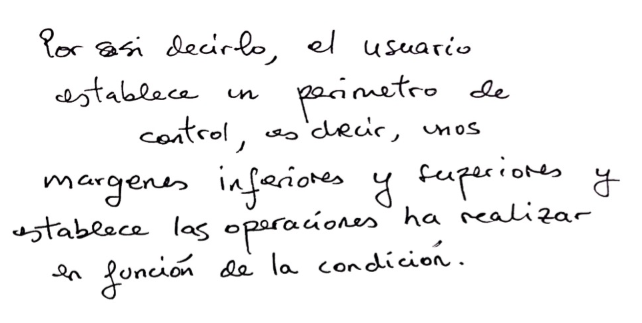 Por asi decirlo, el usuario
establece un perimetro de
control, es decir, unos
margenes inferiores y superiores y
establece las operaciones ha realizar
en función de la condición.